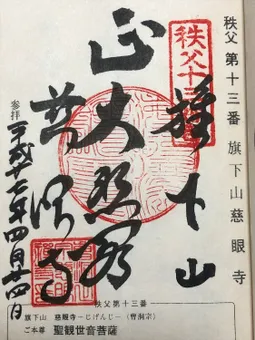 秩父第十三番 旗下山慈眼寺
秩父十三
旗下山
正大悲
慈眼寺
参拝 平成廿七年四月廿四日
秩父第十三番
旗下山 慈眼寺―じげんじ―(曹洞宗)
ご本尊 聖観世音菩薩